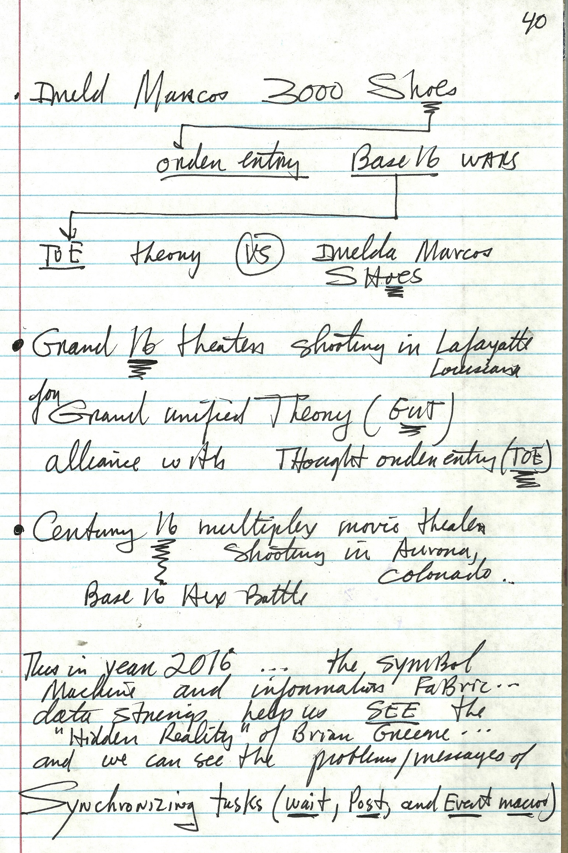 40
• Imeld Marcos 3000 Shoes
order entry Base 16 WARS
TOE theory VS Imelda Marcos
SHoes
• Grand 16 theaters shooting in Lafayatte
Louisiana
for Grand unified Theory (GUT)
alliance with THought order entry (TOE)
• Century 16 multiplex movie theater
shooting in Aurora,
Colorado..
Base 16 Hex Battle
This in year 2016 ... the symBol
Machine and information FaBric...
data strings help us SEE the
"Hidden Reality" of Brian Greene...
and we can see the problems/messages of
Synchronizing tasks (wait, Post, and Event macros)